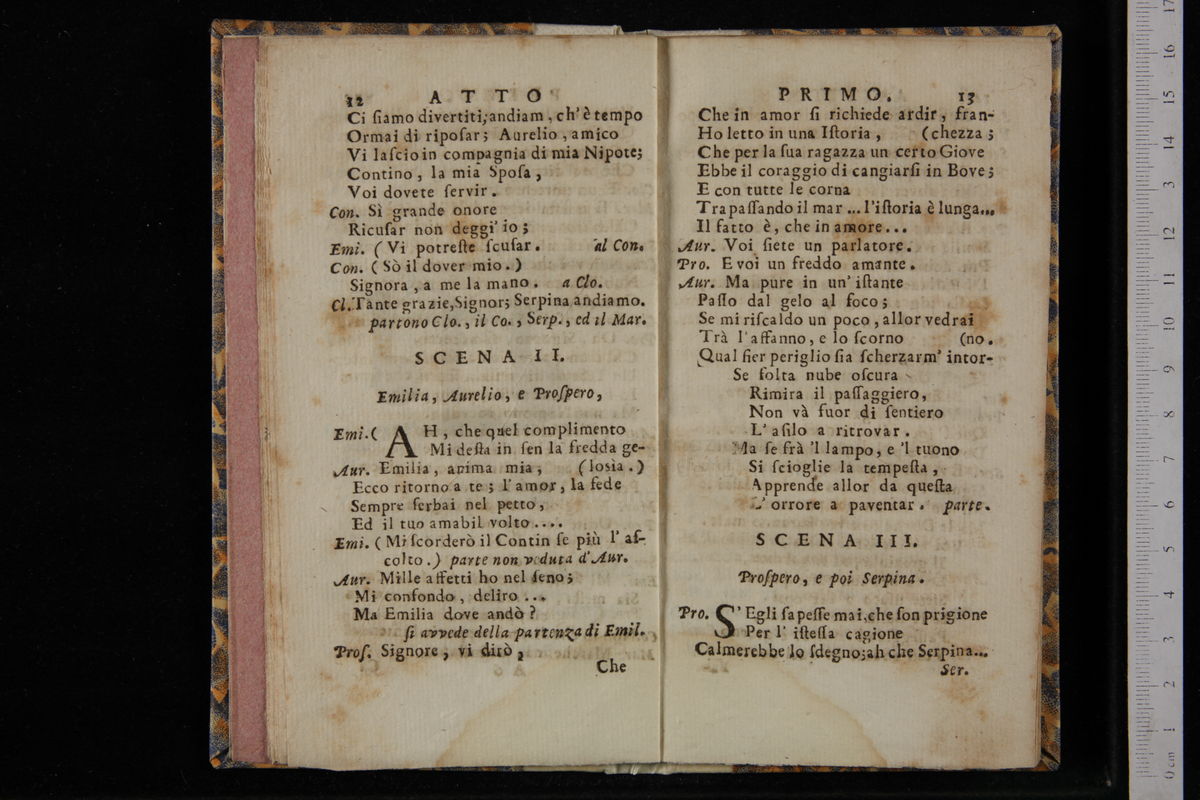 12 ATTO
Ci ſiamo divertiti; andiam, ch'è tempo
Ormai di ripoſar; Aurelio, amico
Vi laſcio in compagnia di mia Nipote;
Contino, la mia Spoſa,
Voi dovete ſervir.
Con. Sì grande onore
Ricuſar non deggi' io;
Emi. (Vi potreſte ſcuſar. al Con.
Con. (Sò il dover mio.)
Signora, a me la mano. a Clo.
Cl. Tante grazie, Signor; Serpina andiamo.
partono Clo., il Co., Serp., ed il Mar.
SCENA II.
Emilia, Aurelio, e Proſpero,
Emi. ( AH, che quel complimento
Mi deſta in ſen la fredda ge-
Aur. Emilia, anima mia; (losìa.)
Ecco ritorno a te; l'amor, la fede
Sempre ſerbai nel petto,
Ed il tuo amabil volto....
Emi. (Mi ſcorderò il Contin ſe più l' aſ-
colto.) parte non veduta d'Aur.
Aur. Mille affetti ho nel ſeno;
Mi confondo, deliro...
Ma Emilia dove andò?
ſi avvede della partenza di Emil.
Proſ. Signore, vi dirò,
Che
PRIMO. 13
Che in amor ſi richiede ardir, fran-
Ho letto in una Iſtoria, (chezza;
Che per la ſua ragazza un certo Giove
Ebbe il coraggio di cangiarſi in Bove;
E con tutte le corna
Trapaſſando il mar... l'iſtoria è lunga...
Il fatto è, che in amore...
Aur. Voi ſiete un parlatore.
Pro. E voi un freddo amante.
Aur. Ma pure in un' iſtante
Paſſo dal gelo al foco;
Se mi riſcaldo un poco, allor vedrai
Trà l'affanno, e lo ſcorno (no.
Qual fier periglio ſia ſcherzarm' intor-
Se folta nube oſcura
Rimira il paſſaggiero,
Non và fuor di ſentiero
L' aſilo a ritrovar.
Ma ſe frà 'l lampo, e 'l tuono
Si ſcioglie la tempeſta,
Apprende allor da queſta
L' orrore a paventar. parte.
SCENA III.
Proſpero, e poi Serpina.
Pro. S' Egli ſapeſſe mai, che ſon prigione
Per l' iſteſſa cagione
Calmerebbe lo ſdegno; ah che Serpina...
Ser.
0 cm 1 2 3 4 5 6 7 8 9 10 11 12 13 14 15 16 17